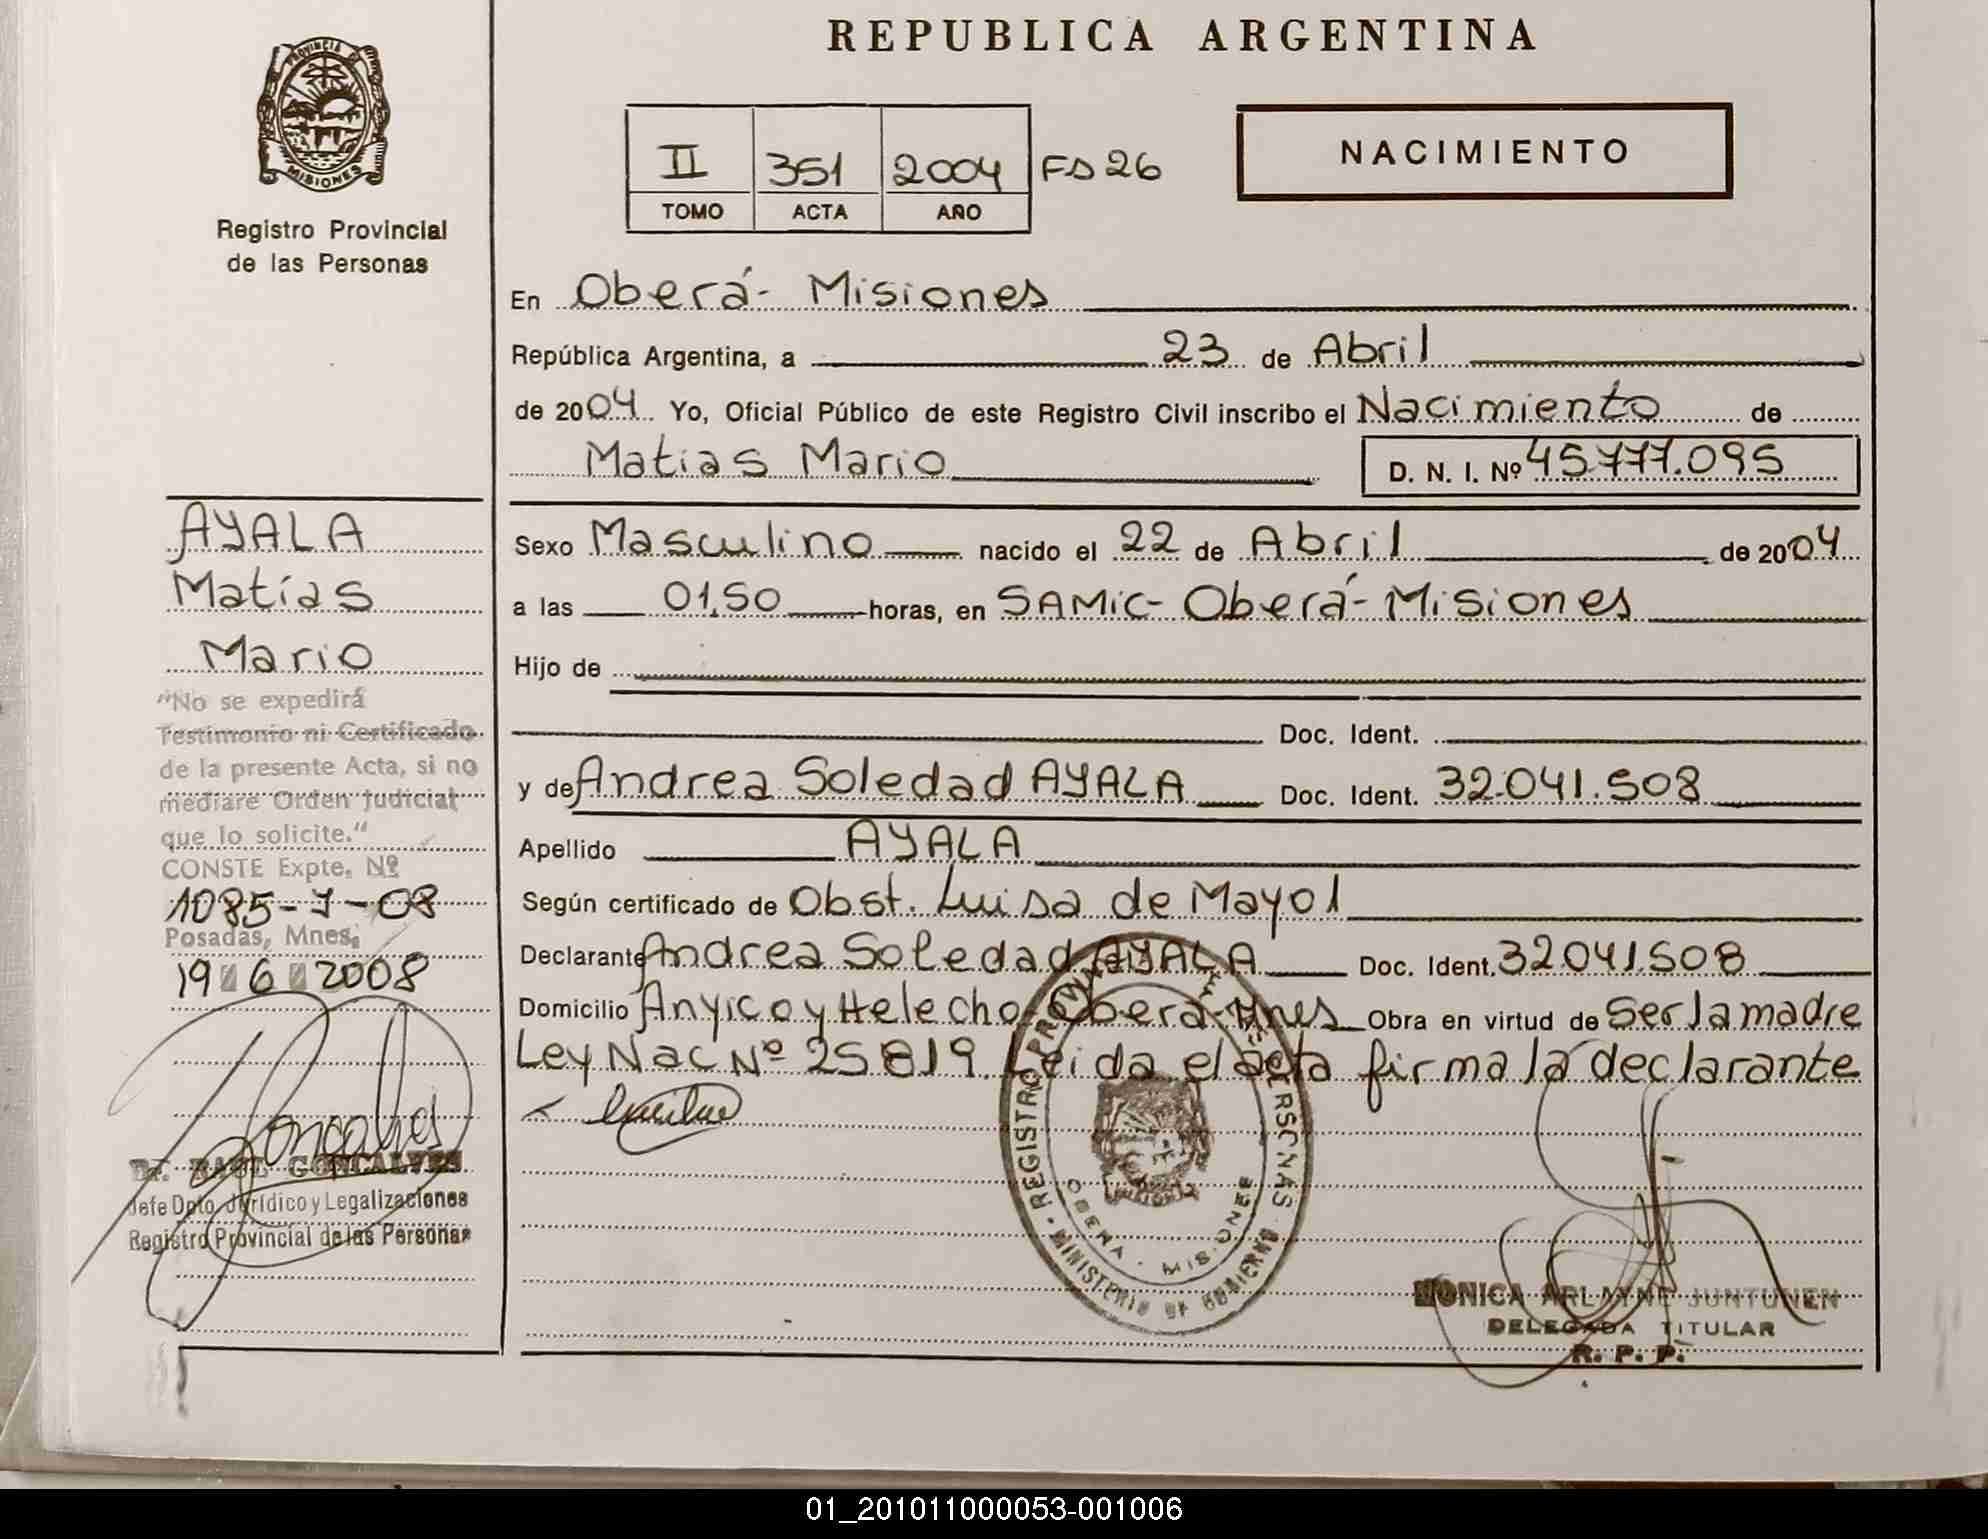 REPUBLICA ARGENTINA
PROVINCIA DE
MISIONES
Registro Provincial
de las Personas
II 351 2004 FD 26
TOMO ACTA AÑO
NACIMIENTO
En Oberá- Misiones
República Argentina, a 23 de Abril
de 2004 Yo, Oficial Público de este Registro Civil inscribo el Nacimiento de
Matias Mario D. N. I. Nº 45.777.095
Sexo Masculino nacido el 22 de Abril de 2004
a las 01,50 horas, en SAMIC- Oberá- Misiones
Hijo de
Doc. Ident.
y de Andrea Soledad AYALA Doc. Ident. 32.041.508
Apellido AYALA
Según certificado de Obst. Luisa de Mayol
Declarante Andrea Soledad AYALA Doc. Ident. 32.041.508
Domicilio Anyico y Helecho- Oberá- Mnes Obra en virtud de Ser la madre
Ley Nac Nº 25819. Leida el acta firma la declarante
AYALA
Matías
Mario
"No se expedirá
Testimonio ni Certificado
de la presente Acta, si no
mediare Orden Judicial
que lo solicite."
CONSTE Expte. Nº
1085-J-08
Posadas, Mnes.
19 6 2008
Goncalves
Dr. RAUL GONCALVES
Jefe Dpto. Jurídico y Legalizaciones
Registro Provincial de las Personas
REGISTRO PROVINCIAL DE LAS PERSONAS
MINISTERIO DE GOBIERNO
OBERA - MISIONES
MONICA ARLAYNE JUNTUNEN
DELEGADA TITULAR
R. P. P.
01_201011000053-001006